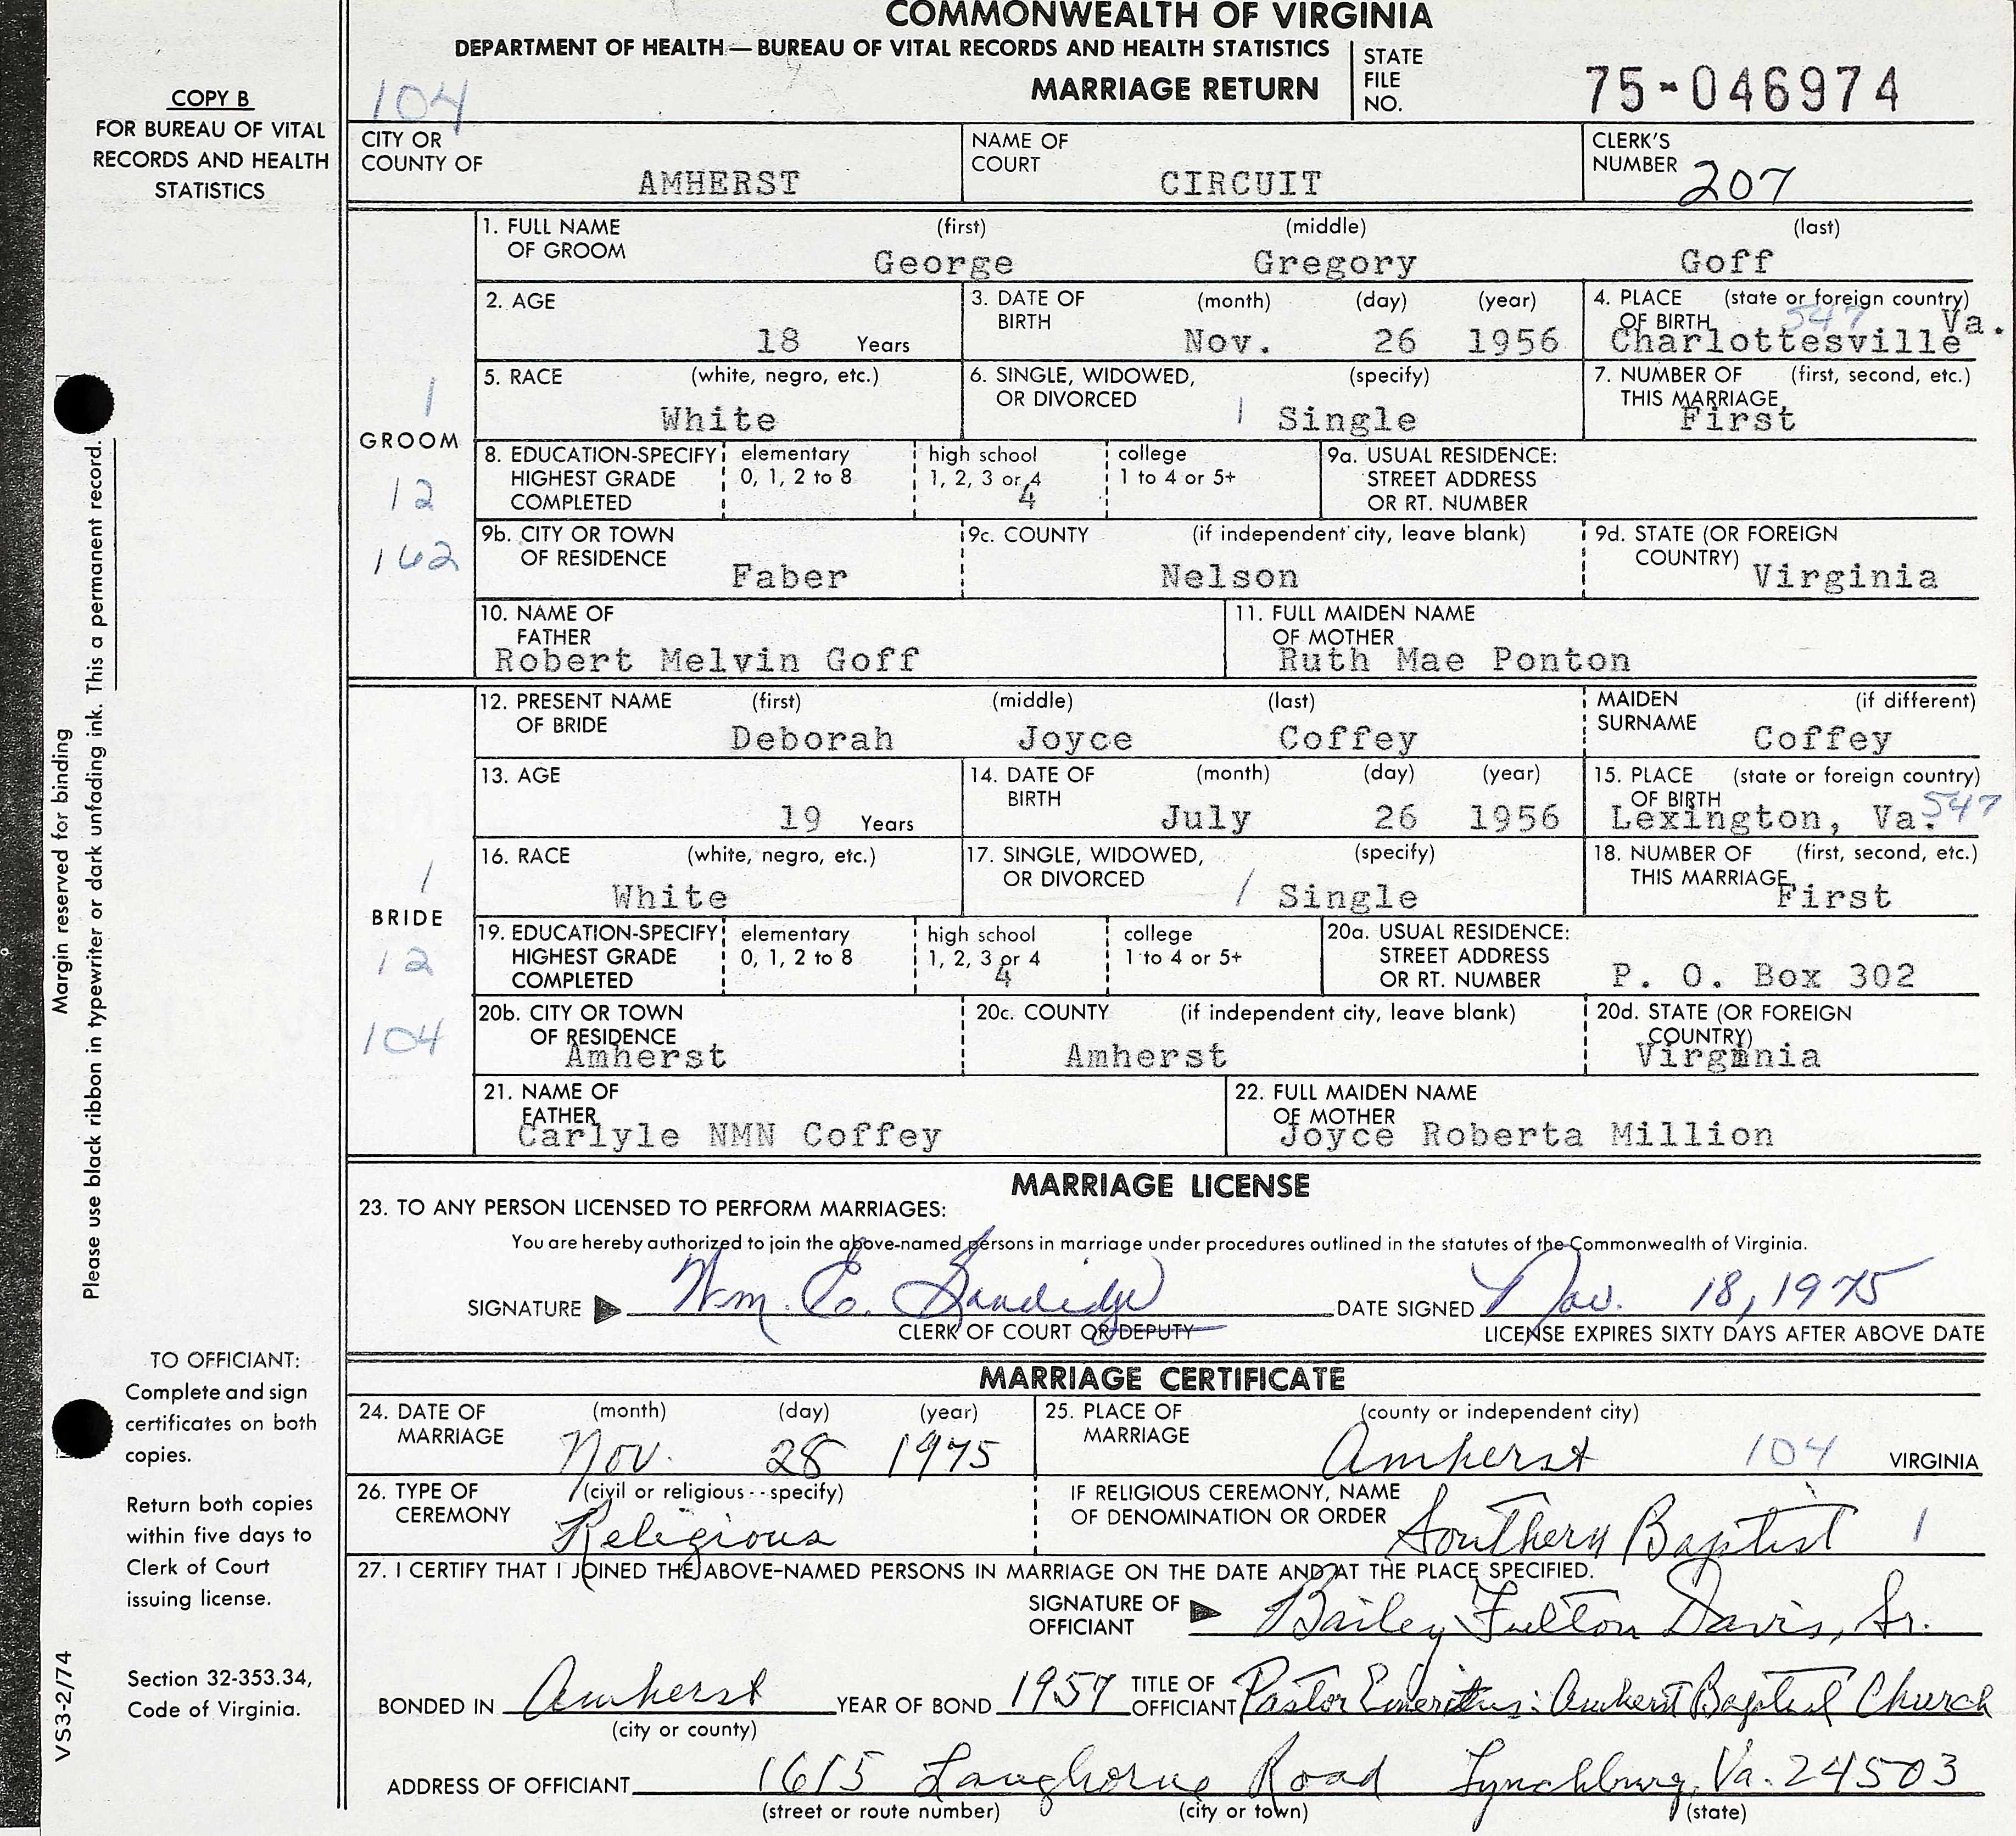 COMMONWEALTH OF VIRGINIA
DEPARTMENT OF HEALTH — BUREAU OF VITAL RECORDS AND HEALTH STATISTICS
MARRIAGE RETURN
STATE FILE NO. 75-046974
COPY B
FOR BUREAU OF VITAL
RECORDS AND HEALTH
STATISTICS
104
CITY OR COUNTY OF AMHERST
NAME OF COURT CIRCUIT
CLERK'S NUMBER 207
1. FULL NAME OF GROOM (first) George (middle) Gregory (last) Goff
2. AGE 18 Years
3. DATE OF BIRTH (month) Nov. (day) 26 (year) 1956
4. PLACE OF BIRTH (state or foreign country) 547 Charlottesville Va.
5. RACE (white, negro, etc.) White
6. SINGLE, WIDOWED, OR DIVORCED (specify) 1 Single
7. NUMBER OF THIS MARRIAGE (first, second, etc.) First
1
GROOM
12
162
8. EDUCATION-SPECIFY HIGHEST GRADE COMPLETED
elementary 0, 1, 2 to 8
high school 1, 2, 3 or 4 4
college 1 to 4 or 5+
9a. USUAL RESIDENCE: STREET ADDRESS OR RT. NUMBER
9b. CITY OR TOWN OF RESIDENCE Faber
9c. COUNTY (if independent city, leave blank) Nelson
9d. STATE (OR FOREIGN COUNTRY) Virginia
10. NAME OF FATHER Robert Melvin Goff
11. FULL MAIDEN NAME OF MOTHER Ruth Mae Ponton
12. PRESENT NAME OF BRIDE (first) Deborah (middle) Joyce (last) Coffey
MAIDEN SURNAME (if different) Coffey
13. AGE 19 Years
14. DATE OF BIRTH (month) July (day) 26 (year) 1956
15. PLACE OF BIRTH (state or foreign country) Lexington, Va. 547
16. RACE (white, negro, etc.) White
17. SINGLE, WIDOWED, OR DIVORCED (specify) 1 Single
18. NUMBER OF THIS MARRIAGE (first, second, etc.) First
1
BRIDE
12
104
19. EDUCATION-SPECIFY HIGHEST GRADE COMPLETED
elementary 0, 1, 2 to 8
high school 1, 2, 3 or 4 4
college 1 to 4 or 5+
20a. USUAL RESIDENCE: STREET ADDRESS OR RT. NUMBER P. O. Box 302
20b. CITY OR TOWN OF RESIDENCE Amherst
20c. COUNTY (if independent city, leave blank) Amherst
20d. STATE (OR FOREIGN COUNTRY) Virginia
21. NAME OF FATHER Carlyle NMN Coffey
22. FULL MAIDEN NAME OF MOTHER Joyce Roberta Million
MARRIAGE LICENSE
23. TO ANY PERSON LICENSED TO PERFORM MARRIAGES:
You are hereby authorized to join the above-named persons in marriage under procedures outlined in the statutes of the Commonwealth of Virginia.
SIGNATURE Wm. E. Sandidge DATE SIGNED Nov. 18, 1975
CLERK OF COURT OR DEPUTY LICENSE EXPIRES SIXTY DAYS AFTER ABOVE DATE
MARRIAGE CERTIFICATE
24. DATE OF MARRIAGE (month) Nov. (day) 28 (year) 1975
25. PLACE OF MARRIAGE (county or independent city) Amherst 104 VIRGINIA
26. TYPE OF CEREMONY (civil or religious--specify) Religious
IF RELIGIOUS CEREMONY, NAME OF DENOMINATION OR ORDER Southern Baptist 1
27. I CERTIFY THAT I JOINED THE ABOVE-NAMED PERSONS IN MARRIAGE ON THE DATE AND AT THE PLACE SPECIFIED.
SIGNATURE OF OFFICIANT Bailey Fulton Davis, Sr.
BONDED IN Amherst (city or county) YEAR OF BOND 1957 TITLE OF OFFICIANT Pastor Emeritus: Amherst Baptist Church
ADDRESS OF OFFICIANT 1615 Langhorne Road Lynchburg, Va. 24503
(street or route number) (city or town) (state)
Margin reserved for binding
Please use black ribbon in typewriter or dark unfading ink. This a permanent record.
TO OFFICIANT:
Complete and sign
certificates on both
copies.
Return both copies
within five days to
Clerk of Court
issuing license.
Section 32-353.34,
Code of Virginia.
VS3-2/74